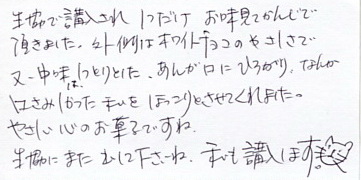 生協で講入され 1つだけ お味見てかんじで
頂きました。外側はホワイトチョコのやさしさで
又、中味はしっとりとした、あんが口にひろがり、なんか
口さみしかった 私を ほっこりとさせてくれました。
やさしい心のお菓子ですね。
生協に また 出して下さいね。私も講入します!